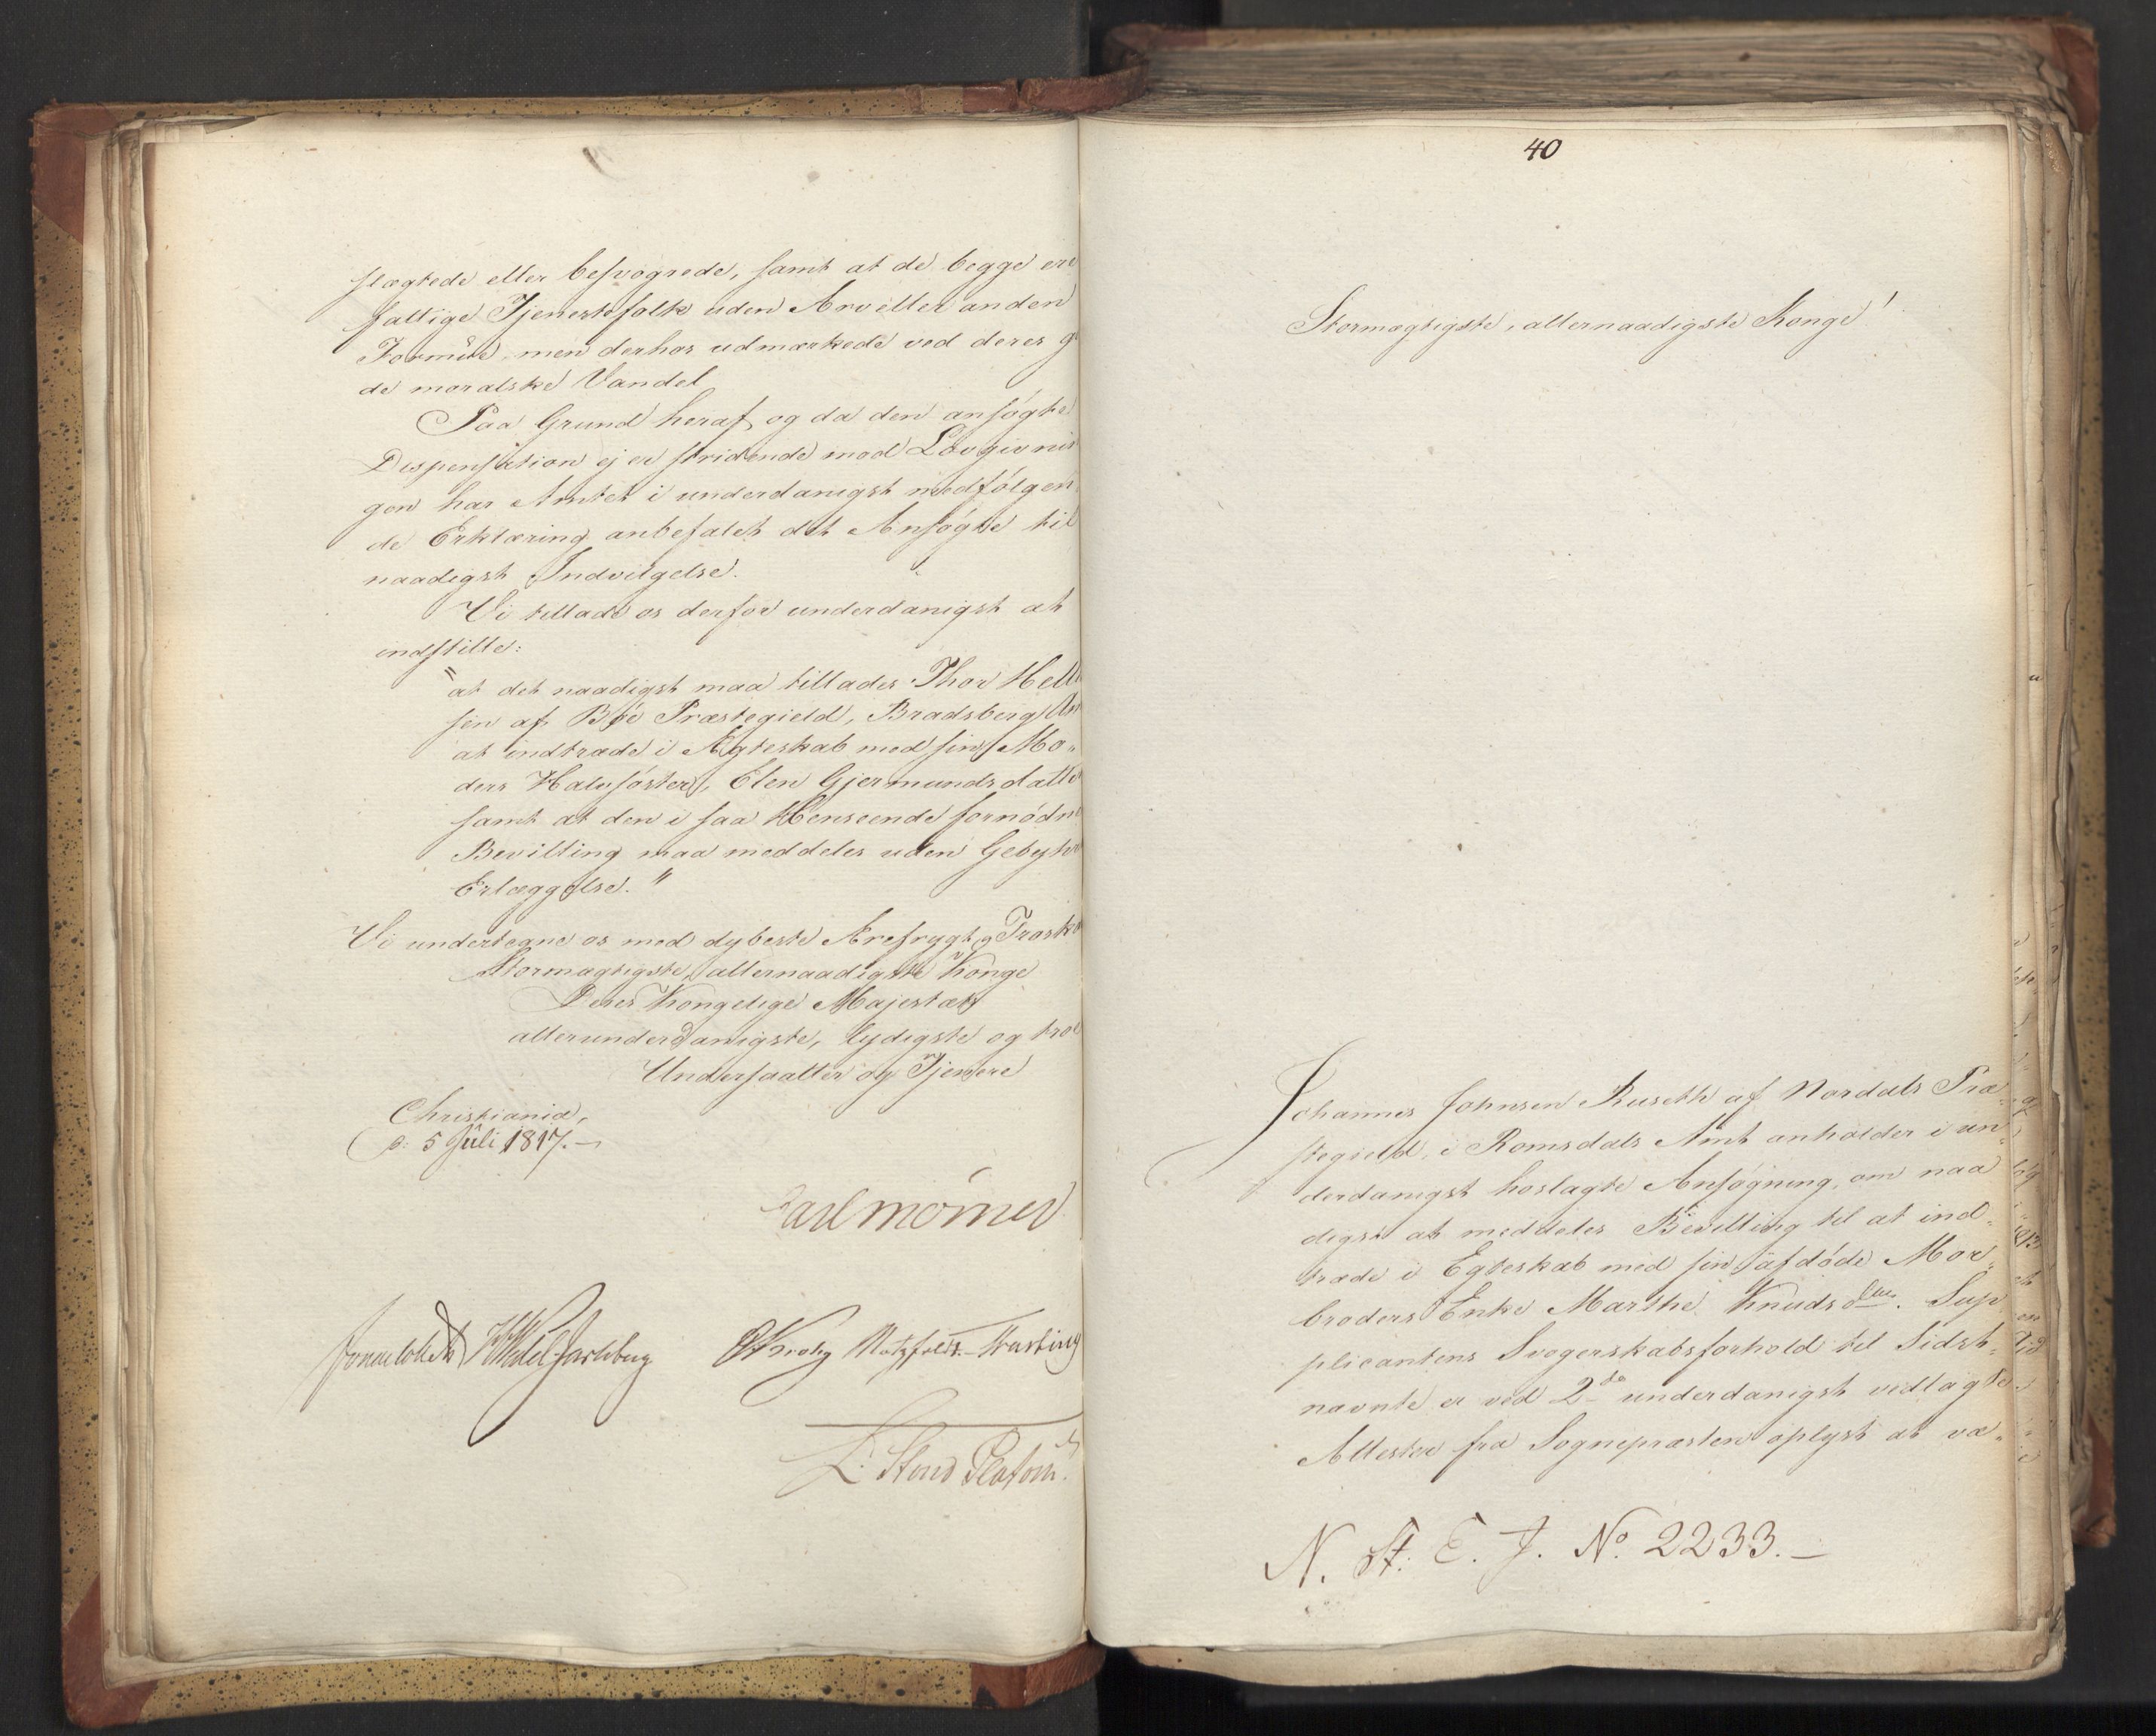 slægtede eller besvogrede, samt at de begge ere
fattige Tjenestefolk uden Arv eller anden
Formue, men derhos udmærkede ved deres go
de moralske Vandel
Paa Grund heraf, og da den ansøgte
Dispensation ej er stridende mod Lovgivnin
gen har Amtet i underdanigst medfølgen
de Erklæring anbefalet det Ansøgte til
naadigst Indvilgelse.
Vi tillade os derfor underdanigst at
indstille:
"at det naadigst maa tillades Thor Hell
sen af Bøe Præstegield, Bradsberg Am
at indtræde i Ægteskab med sin Mo-
ders Halvsøster, Elen Gjermundsdatte
samt at den i saa Henseende fornødne
Bevilling maa meddeles uden Gebyhr
Erlæggelse."
Vi undertegne os med dybeste Ærefrygt og Troska
Stormægtigste, allernaadigste Konge
Deres Kongelige Majestæts
allerunderdanigste, lydigste og troe
Undersaatter og Tjenere
Christiania,
d: 5 Juli 1817.-
Carl Mörner
Sommerhielm HWedel Jarlsberg Krohg Motzfeldt. Fasting
L: Stoud Platou.
40
Stormægtigste, allernaadigste Konge!
Johannes Johnsen Ruseth af Nordals Præ
stegield, i Romsdals Amt anholder i un
derdanigst hoslagte Ansøgning, om naa
digst at meddeles Bevilling til at ind-
træde i Egteskab med sin afdøde Mor-
broders Enke Marthe Knudsdtter. Sup
plicantens Svogerskabsforhold til Sidst-
nævnte er ved 2de underdanigst vedlagte
Attester fra Sognepræsten oplyst at væ-
N. St. E. J. No. 2233.-